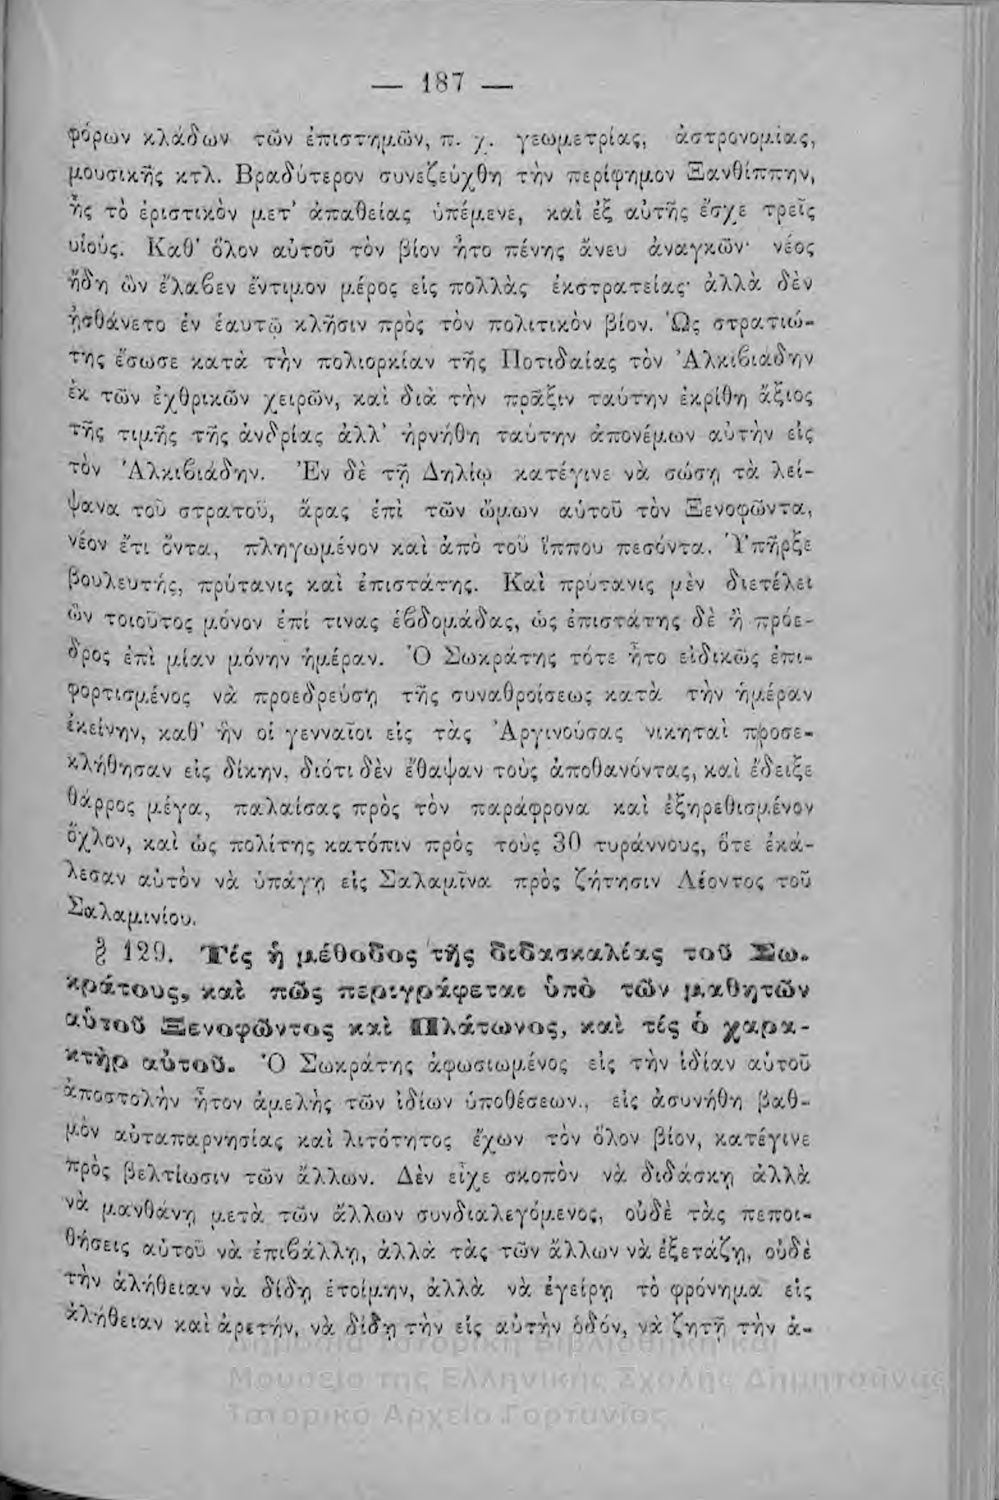 — 187 —
φόρων κλάδων τῶν ἐπιστημῶν, π. χ. γεωμετρίας, ἀστρονομίας,
μουσικῆς κτλ. Βραδύτερον συνεζεύχθη τὴν περίφημον Ξανθίππην,
ἧς τὸ ἐριστικὸν μετ' ἀπαθείας ὑπέμενε, καὶ ἐξ αὐτῆς ἔσχε τρεῖς
υἱούς. Καθ' ὅλον αὐτοῦ τὸν βίον ἦτο πένης ἄνευ ἀναγκῶν· νέος
ἤδη ὢν ἔλαβεν ἔντιμον μέρος εἰς πολλὰς ἐκστρατείας· ἀλλὰ δὲν
ᾐσθάνετο ἐν ἑαυτῷ κλῆσιν πρὸς τὸν πολιτικὸν βίον. Ὡς στρατιώ-
της ἔσωσε κατὰ τὴν πολιορκίαν τῆς Ποτιδαίας τὸν Ἀλκιβιάδην
ἐκ τῶν ἐχθρικῶν χειρῶν, καὶ διὰ τὴν πρᾶξιν ταύτην ἐκρίθη ἄξιος
τῆς τιμῆς τῆς ἀνδρίας ἀλλ' ἠρνήθη ταύτην ἀπονέμων αὐτὴν εἰς
τὸν Ἀλκιβιάδην. Ἐν δὲ τῇ Δηλίῳ κατέγινε νὰ σώσῃ τὰ λεί-
ψανα τοῦ στρατοῦ, ἄρας ἐπὶ τῶν ὤμων αὐτοῦ τὸν Ξενοφῶντα,
νέον ἔτι ὄντα, πληγωμένον καὶ ἀπὸ τοῦ ἵππου πεσόντα. Ὑπῆρξε
βουλευτής, πρύτανις καὶ ἐπιστάτης. Καὶ πρύτανις μὲν διετέλει
ὢν τοιοῦτος μόνον ἐπί τινας ἑβδομάδας, ὡς ἐπιστάτης δὲ ἢ πρόε-
δρος ἐπὶ μίαν μόνην ἡμέραν. Ὁ Σωκράτης τότε ἦτο εἰδικῶς ἐπι-
φορτισμένος νὰ προεδρεύσῃ τῆς συναθροίσεως κατὰ τὴν ἡμέραν
ἐκείνην, καθ' ἣν οἱ γενναῖοι εἰς τὰς Ἀργινούσας νικηταὶ προσε-
κλήθησαν εἰς δίκην, διότι δὲν ἔθαψαν τοὺς ἀποθανόντας, καὶ ἔδειξε
θάρρος μέγα, παλαίσας πρὸς τὸν παράφρονα καὶ ἐξηρεθισμένον
ὄχλον, καὶ ὡς πολίτης κατόπιν πρὸς τοὺς 30 τυράννους, ὅτε ἐκά-
λεσαν αὐτὸν νὰ ὑπάγῃ εἰς Σαλαμῖνα πρὸς ζήτησιν Λέοντος τοῦ
Σαλαμινίου.
§ 129. Τίς ἡ μέθοδος τῆς διδασκαλίας τοῦ Σω-
κράτους, καὶ πῶς περιγράφεται ὑπὸ τῶν μαθητῶν
αὐτοῦ Ξενοφῶντος καὶ Πλάτωνος, καὶ τίς ὁ χαρα-
κτὴρ αὐτοῦ. Ὁ Σωκράτης ἀφωσιωμένος εἰς τὴν ἰδίαν αὐτοῦ
ἀποστολὴν ἦτον ἀμελὴς τῶν ἰδίων ὑποθέσεων., εἰς ἀσυνήθη βαθ-
μὸν αὐταπαρνησίας καὶ λιτότητος ἔχων τὸν ὅλον βίον, κατέγινε
πρὸς βελτίωσιν τῶν ἄλλων. Δὲν εἶχε σκοπὸν νὰ διδάσκῃ ἀλλὰ
νὰ μανθάνῃ μετὰ τῶν ἄλλων συνδιαλεγόμενος, οὐδὲ τὰς πεποι-
θήσεις αὐτοῦ νὰ ἐπιβάλλῃ, ἀλλὰ τὰς τῶν ἄλλων νὰ ἐξετάζῃ, οὐδὲ
τὴν ἀλήθειαν νὰ δίδῃ ἑτοίμην, ἀλλὰ νὰ ἐγείρῃ τὸ φρόνημα εἰς
ἀλήθειαν καὶ ἀρετήν, νὰ δίδῃ τὴν εἰς αὐτὴν ὁδόν, νὰ ζητῇ τὴν ἀ-
Δημόσια Ιστορική Βιβλιοθήκη και
Μουσείο της Ελληνικής Σχολής Δημητσάνας
Ιστορικό Αρχείο Γορτυνίας